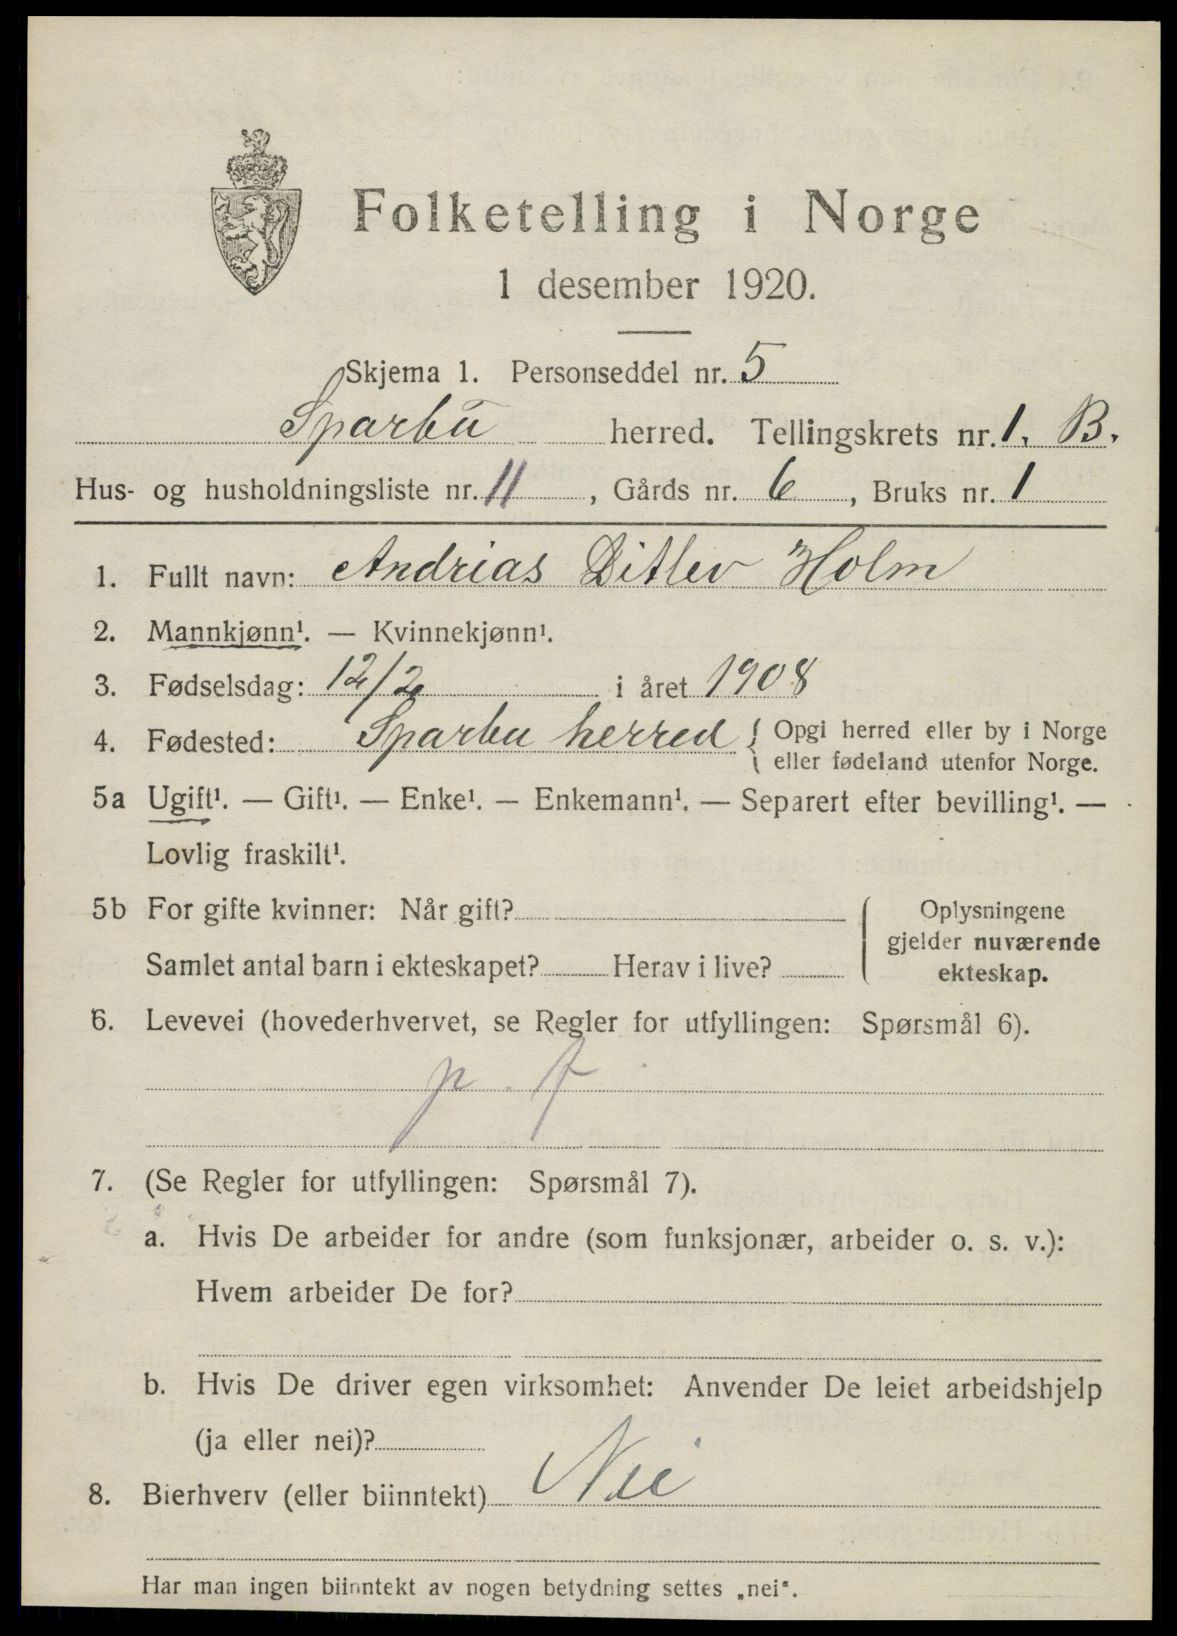 Folketelling i Norge
1 desember 1920.
Skjema 1. Personseddel nr. 5
Sparbu herred. Tellingskrets nr. 1. B.
Hus- og husholdningsliste nr. 11, Gårds nr. 6, Bruks nr. 1
1. Fullt navn: Andrias Ditlev Holm
2. Mannkjønn¹. — Kvinnekjønn¹.
3. Fødselsdag: 12/2 i året 1908
4. Fødested: Sparbu herred { Opgi herred eller by i Norge
eller fødeland utenfor Norge.
5a Ugift¹. — Gift¹. — Enke¹. — Enkemann¹. — Separert efter bevilling¹. —
Lovlig fraskilt¹.
5b For gifte kvinner: Når gift? { Oplysningene
gjelder nuværende
Samlet antal barn i ekteskapet? Herav i live?
ekteskap.
6. Levevei (hovederhvervet, se Regler for utfyllingen: Spørsmål 6).
p. f
7. (Se Regler for utfyllingen: Spørsmål 7).
a. Hvis De arbeider for andre (som funksjonær, arbeider o. s. v.):
Hvem arbeider De for?
b. Hvis De driver egen virksomhet: Anvender De leiet arbeidshjelp
(ja eller nei)?
8. Bierhverv (eller biinntekt) Nei
Har man ingen biinntekt av nogen betydning settes „nei".